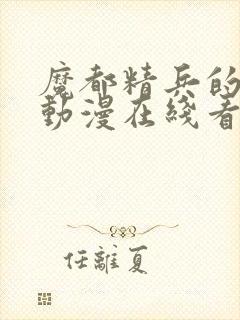 魔都精兵的
動漫在綫看
任離夏